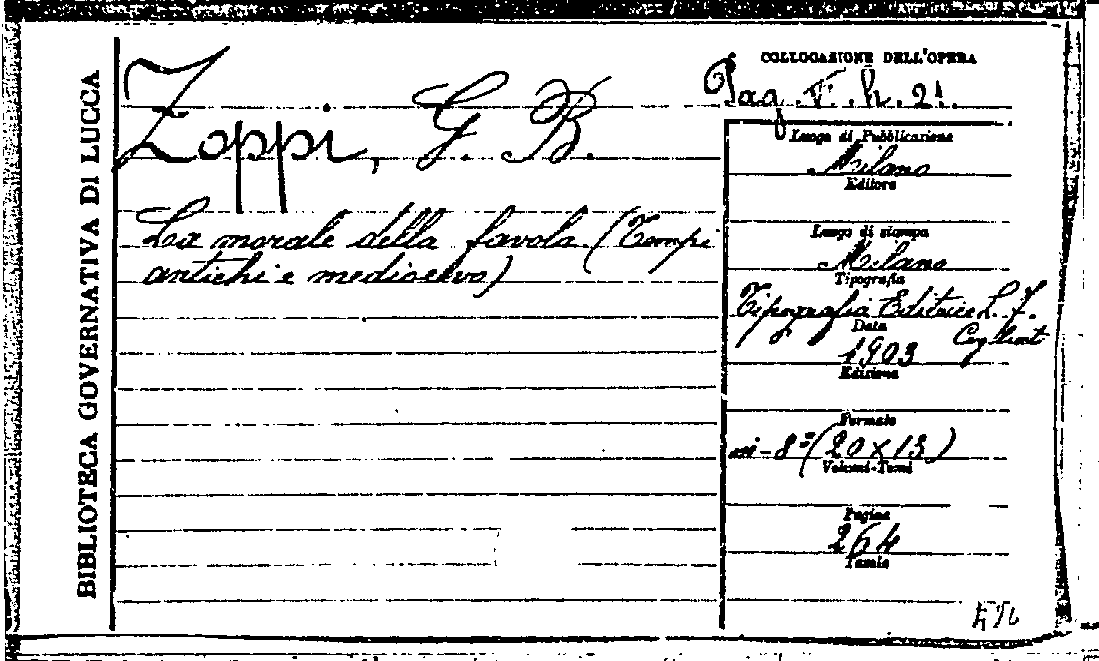 BIBLIOTECA GOVERNATIVA DI LUCCA
Zoppi, G. B.
La morale della favola (Tempi
antichi e medioevo)
COLLOCAZIONE DELL'OPERA
Pag. V. h. 21.
Luogo di Pubblicazione
Milano
Editore
Luogo di stampa
Milano
Tipografia
Tipografia Editrice L. F.
Cogliati
Data
1903
Edizione
Formato
in-8º (20 x 13)
Volumi-Tomi
Pagine
264
Tavole